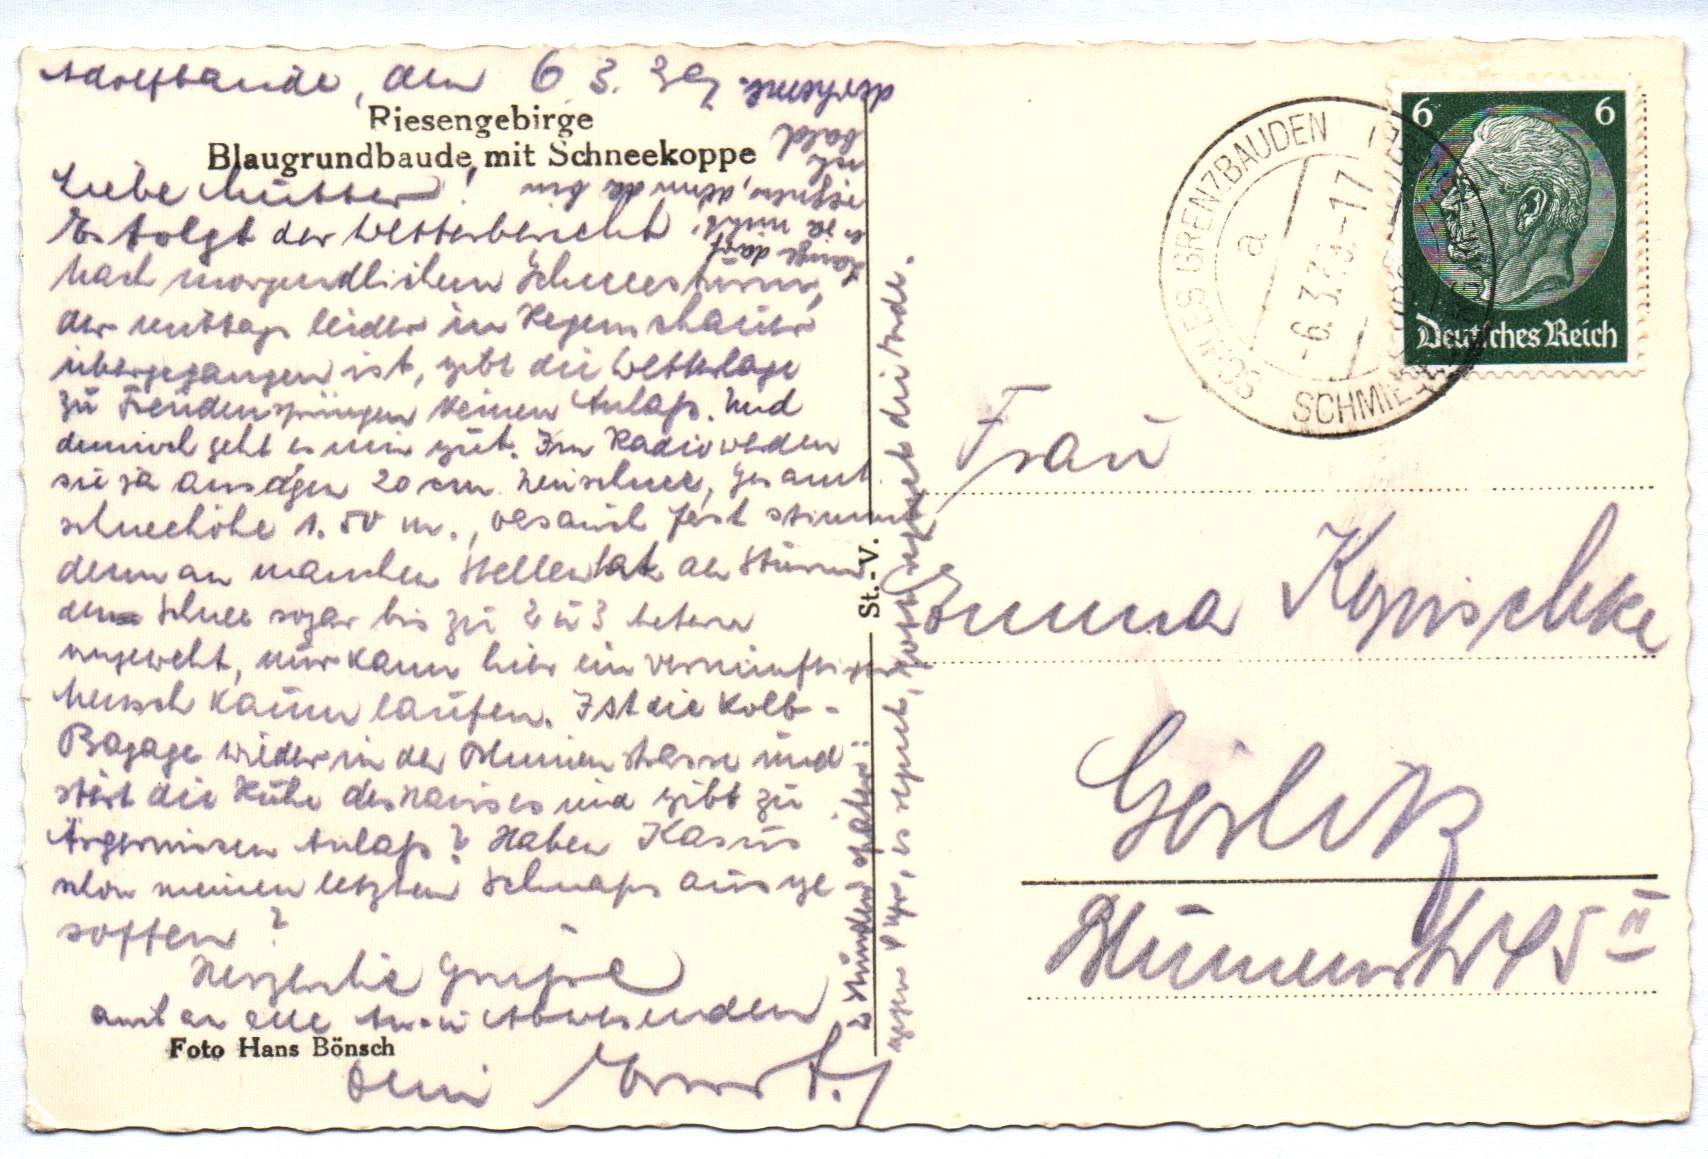 Adolfbaude, den 6. 3. 39
Riesengebirge
Blaugrundbaude, mit Schneekoppe
Liebe Mutter!
Es folgt der Wetterbericht
Nach morgendlichem Schneesturm,
der mittags leider in Regenschauer
übergegangen ist, gibt die Wetterlage
zu Freudensprüngen keinen Anlaß. Und
dennoch geht es mir gut. Im Radio werden
sie ja ansagen 20 cm Neuschnee, Gesamt
schneehöhe 1.50 m., fest stimmt
denn an manchen Stellen hat der Sturm
den Schnee sogar bis zu 2 u 3 Metern
angeweht, nur kann hier ein vernünftiger
Mensch kaum laufen. Ist die Kolb-
Bagage wieder in der Blumenstrasse und
stört die Ruhe des Hauses und gibt zu
Ärgernissen Anlaß? Haben
schon meinen letzten Schnaps ausge
soffen?
Herzliche Grüße
auch an alle An- u Abwesenden
Dein Ernst.
Foto Hans Bönsch
Lange darf
es ja nicht,
denn da bin
ich
bald
daheim.
2 Stunden später:
gegen Uhr, es regnet, regnet die Erde.
St. V.
SCHLES GRENZBAUDEN
a
-6.3.39.-17
SCHMIE
6 6
Deutsches Reich
Frau
Emma Kopischke
Görlitz
Blumenstr 45 II